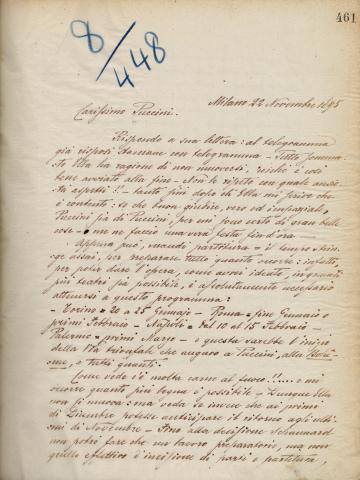 461
8/448
Milano 22 Novembre 1895
Carissimo Puccini.
Rispondo a sua lettera: al telegramma
già risposi stamane con telegramma - Tutto somma-
to Ella ha ragione di non muoversi, poichè è così
bene avviato alla fine - Non le ripeto con quale ansie-
tà aspetti!! - tanto più dopo ch'Ella mi scrive che
è contento: so che buon giudice, vero ed imparziale,
Puccini fa di Puccini, per cui sono certo di gran belle
cose - e me ne faccio una vera festa fin d'ora -
Appena può, mandi partitura = il tempo strin-
ge assai, per preparare tutto quanto occorre: infatti,
per poter dare l'opera, come avrei ideato, in quanti
più teatri sia possibile, è assolutamente necessario
attenersi a questo programma:
- Torino = 20 a 25 Gennajo - Roma = fine Gennaio o
primi Febbraio - Napoli = dal 10 al 15 Febbraio -
Palermo = primi Marzo - e questa sarebbe l'inizio
della via trionfale che auguro a Puccini, alla Bohè-
me, e tutti quanti.
Come vede c'è molta carne al fuoco!!.... e mi
occorre quanto più legna è possibile - Dunque Ella
non si muova: ma veda se invece che ai primi
di Dicembre potesse anticipare il ritorno agli ulti-
mi di Novembre - Sino alla decisione Schaunard
non potrò fare che un lavoro preparatorio, ma non
quello effettivo d'incisione di parti e partitura,